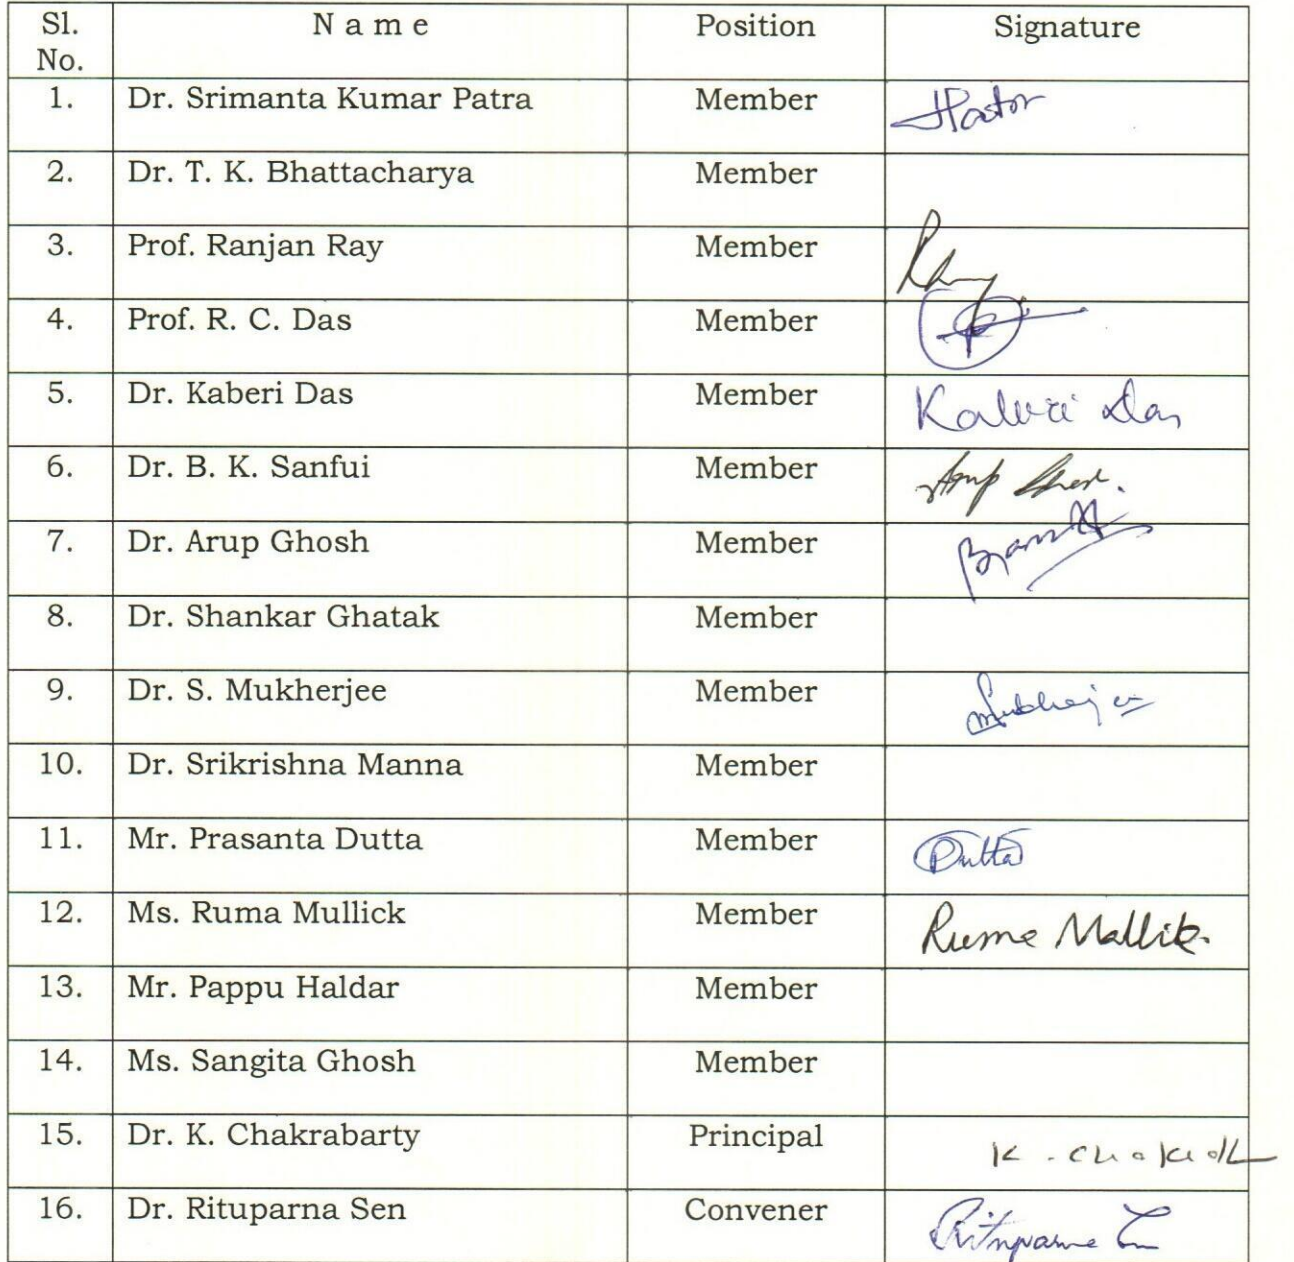 Sl. No. N a m e Position Signature
1. Dr. Srimanta Kumar Patra Member
2. Dr. T. K. Bhattacharya Member
3. Prof. Ranjan Ray Member
4. Prof. R. C. Das Member
5. Dr. Kaberi Das Member Kaberi Das
6. Dr. B. K. Sanfui Member Arup Ghosh.
7. Dr. Arup Ghosh Member
8. Dr. Shankar Ghatak Member
9. Dr. S. Mukherjee Member SMukherjee
10. Dr. Srikrishna Manna Member
11. Mr. Prasanta Dutta Member PDutta
12. Ms. Ruma Mullick Member Ruma Mallik.
13. Mr. Pappu Haldar Member
14. Ms. Sangita Ghosh Member
15. Dr. K. Chakrabarty Principal
16. Dr. Rituparna Sen Convener Rituparna Sen